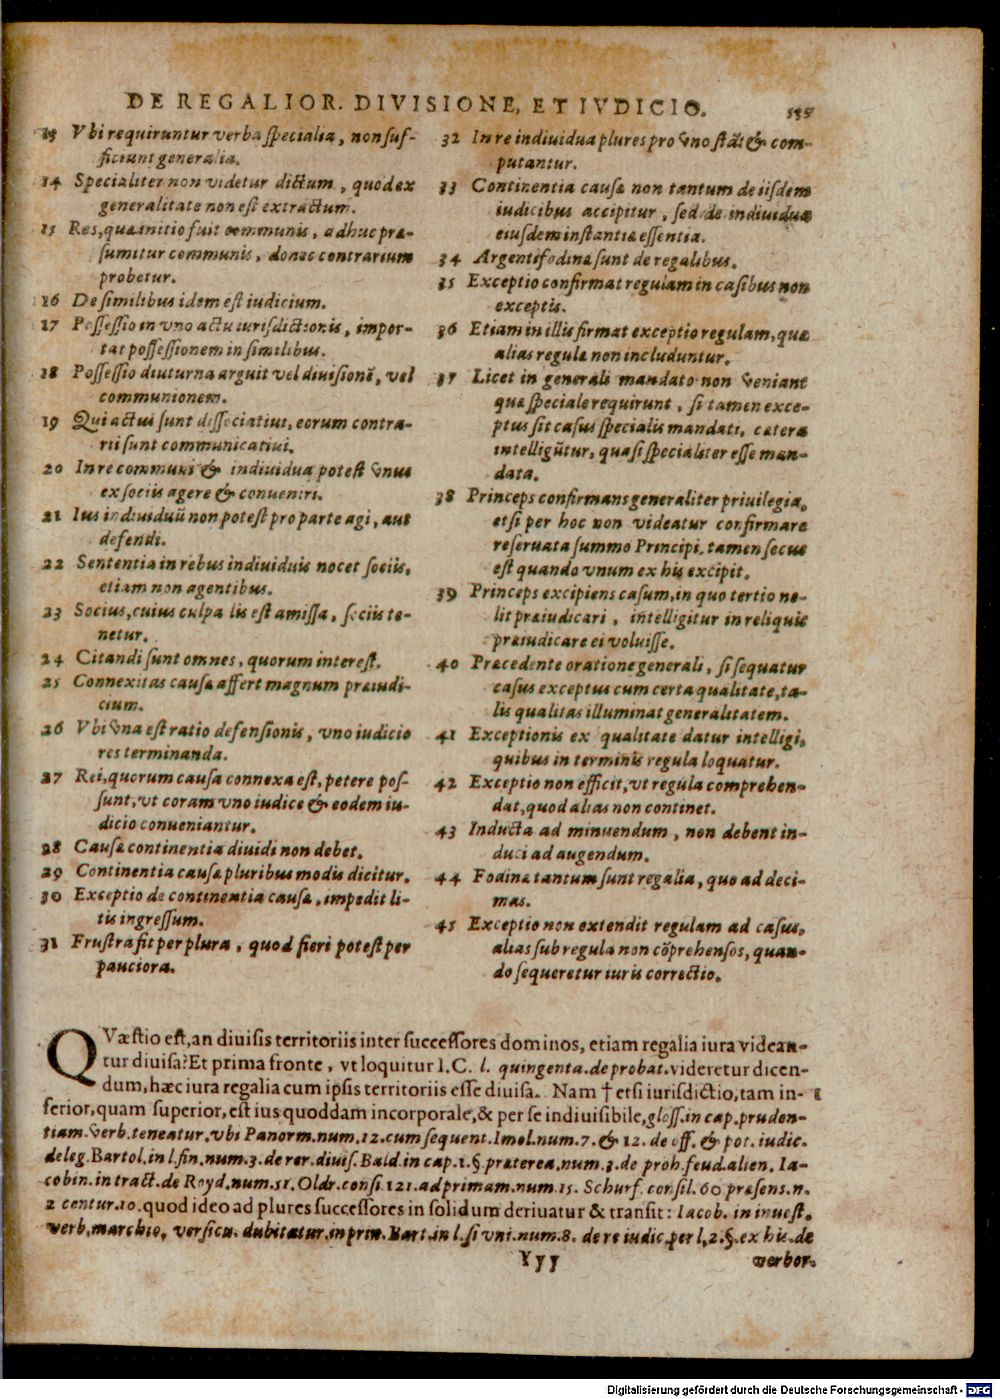 DE REGALIOR. DIVISIONE, ET IVDICIO.
13 Vbi requiruntur verba specialia, non suf-
ficiunt generalia.
14 Specialiter non videtur dictum, quod ex
generalitate non est extractum.
15 Res, quæ initio fuit communis, adhuc præ-
sumitur communis, donec contrarium
probetur.
16 De similibus idem est iudicium.
17 Possessio in vno actu iurisdictionis, impor-
tat possessionem in similibus.
18 Possessio diuturna arguit vel diuisionē, vel
communionem.
19 Qui actus sunt dissociatiui, eorum contra-
rii sunt communicatiui.
20 In re communi & indiuidua potest vnus
ex sociis agere & conueniri.
21 Ius indiuiduū non potest pro parte agi, aut
defendi.
22 Sententia in rebus indiuiduis nocet sociis,
etiam non agentibus.
23 Socius, cuius culpa lis est amissa, sociis te-
netur.
24 Citandi sunt omnes, quorum interest.
25 Connexitas causæ affert magnum præiudi-
cium.
26 Vbi vna est ratio defensionis, vno iudicio
res terminanda.
27 Rei, quorum causa connexa est, petere pos-
sunt, vt coram vno iudice & eodem iu-
dicio conueniantur.
28 Causæ continentia diuidi non debet.
29 Continentia causæ pluribus modis dicitur.
30 Exceptio de continentia causæ, impedit li-
tis ingressum.
31 Frustra fit per plura, quod fieri potest per
pauciora.
32 In re indiuidua plures pro vno & com-
putantur.
33 Continentia causæ non tantum de iisdem
iudicibus accipitur, sed de indiuidua
eiusdem instantiæ essentia.
34 Argentifodinæ sunt de regalibus.
35 Exceptio confirmat regulam in casibus non
exceptis.
36 Etiam in illis firmat exceptio regulam, quæ
alias regula non includuntur.
37 Licet in generali mandato non veniant
quæ speciale requirunt, si tamen exce-
ptus sit casus specialis mandati, cætera
intelligūtur, quasi specialiter esse man-
data.
38 Princeps confirmans generaliter priuilegia,
etsi per hoc non videatur confirmare
reseruata summo Principi, tamen secus
est quando vnum ex his excipit.
39 Princeps excipiens casum, in quo tertio no-
lit præiudicari, intelligitur in reliquis
præiudicare ei voluisse.
40 Præcedente oratione generali, si sequatur
casus exceptus cum certa qualitate, ta-
lis qualitas illuminat generalitatem.
41 Exceptionis ex qualitate datur intelligi,
quibus in terminis regula loquatur.
42 Exceptio non efficit, vt regula comprehen-
dat, quod alias non continet.
43 Inducta ad minuendum, non debent in-
duci ad augendum.
44 Fodinæ tantum sunt regalia, quo ad deci-
mas.
45 Exceptio non extendit regulam ad casus,
alias sub regula non cōprehensos, quan-
do sequeretur iuris correctio.
QVæstio est, an diuisis territoriis inter successores dominos, etiam regalia iura videan-
tur diuisa? Et prima fronte, vt loquitur I.C. l. quingenta. de probat. videretur dicen-
dum, hæc iura regalia cum ipsis territoriis esse diuisa. Nam † etsi iurisdictio, tam in- 1
ferior, quam superior, est ius quoddam incorporale, & per se indiuisibile, gloss. in cap. pruden-
tiam. verb. teneatur. vbi Panorm. num. 12. cum sequent. Imol. num. 7. & 12. de off. & pot. iudic.
deleg. Bartol. in l. fin. num. 3. de rer. diuis. Bald. in cap. 1. §. præterea. num. 3. de proh. feud. alien. Ia-
cobin. in tract. de Royd. num. 51. Oldr. consi. 121. ad primam. num. 15. Schurf. consil. 60 præsens. n.
2 centur. 10. quod ideo ad plures successores in solidum deriuatur & transit: Iacob. in inuest.
verb. marchio, versicu. dubitatur. in prin. Bart. in l. si vni. num. 8. de re iudic. per l. 2. §. ex his. de
Yyy verbor.
Digitalisierung gefördert durch die Deutsche Forschungsgemeinschaft - DFG